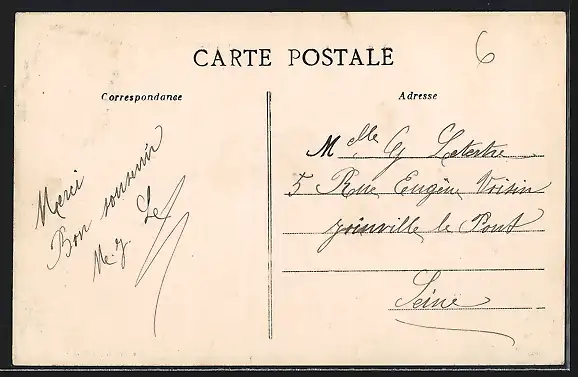 CARTE POSTALE
6
Correspondance
Adresse
Merci
Bon souvenir
Melle G Letertre
5 Rue Eugène Voisin
Joinville le Pont
Seine